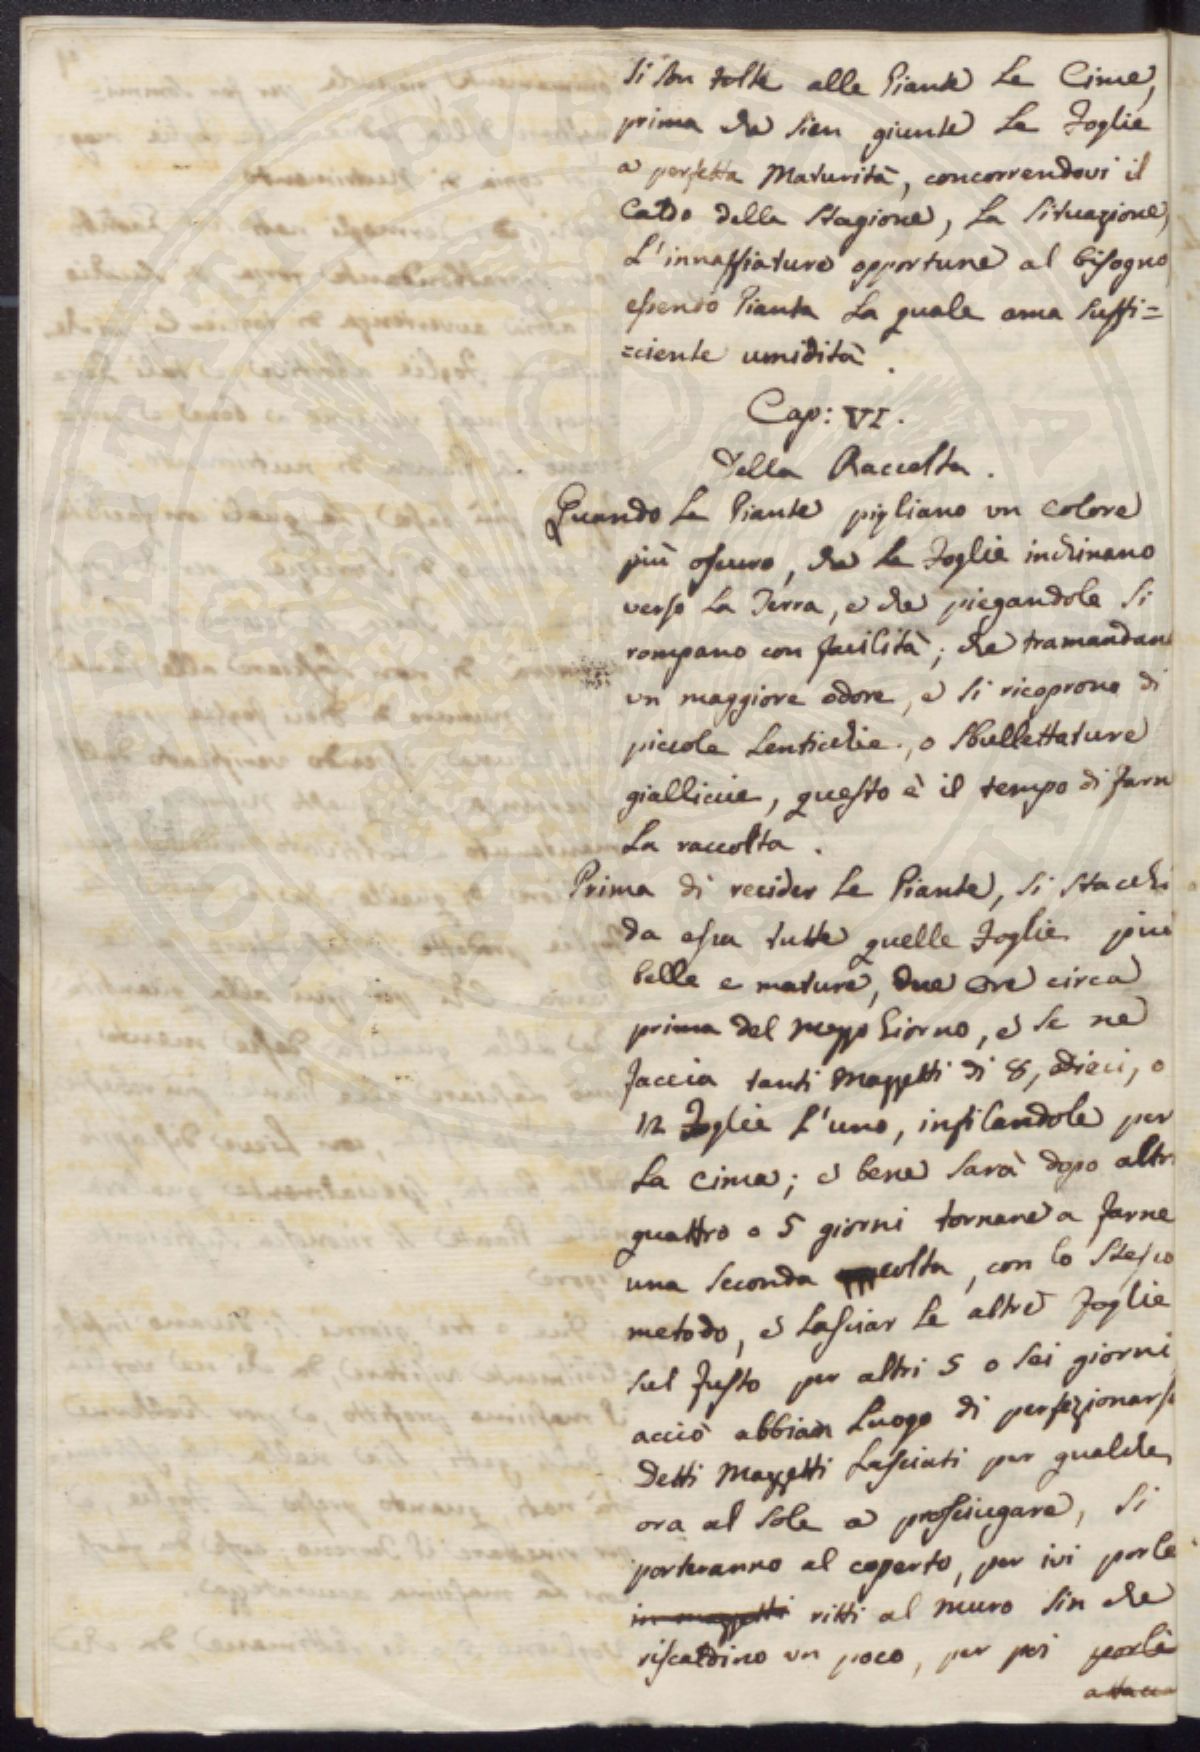 si son tolte alle Piante le Cime,
prima che sien giunte le Foglie
a perfetta Maturità, concorrendovi il
Caldo della Stagione, la Situazione,
l'innaffiature opportune al bisogno
essendo Pianta la quale ama suffi=
=ciente umidità.
Cap: VI.
Della Raccolta.
Quando le Piante pigliano un colore
più oscuro, che le Foglie inchinano
verso la Terra, e che piegandole si
rompano con facilità; che tramandan
un maggiore odore, e si ricoprono di
piccole Lenticchie, o sbullettature
gialliccie, questo è il tempo di farn
la raccolta.
Prima di recider le Piante, si stacchi
da essa tutte quelle Foglie più
belle e mature, due Ore circa
prima del mezzo Giorno, e se ne
faccia tanti Mazzetti di 8, dieci, o
12 Foglie l'uno, infilandole per
la cima; e bene sarà dopo altri
quattro o 5 giorni tornare a farne
una seconda colta, con lo stesso
metodo, e lasciar le altre Foglie
sul fusto per altri 5 o sei giorni
acciò abbian luogo di perfezionarsi
Detti Mazzetti lasciati per qualche
ora al Sole a prosciugare, si
porteranno al coperto, per ivi porle
in mazzetti ritti al muro sin che
riscaldino un poco, per poi porli
attacca